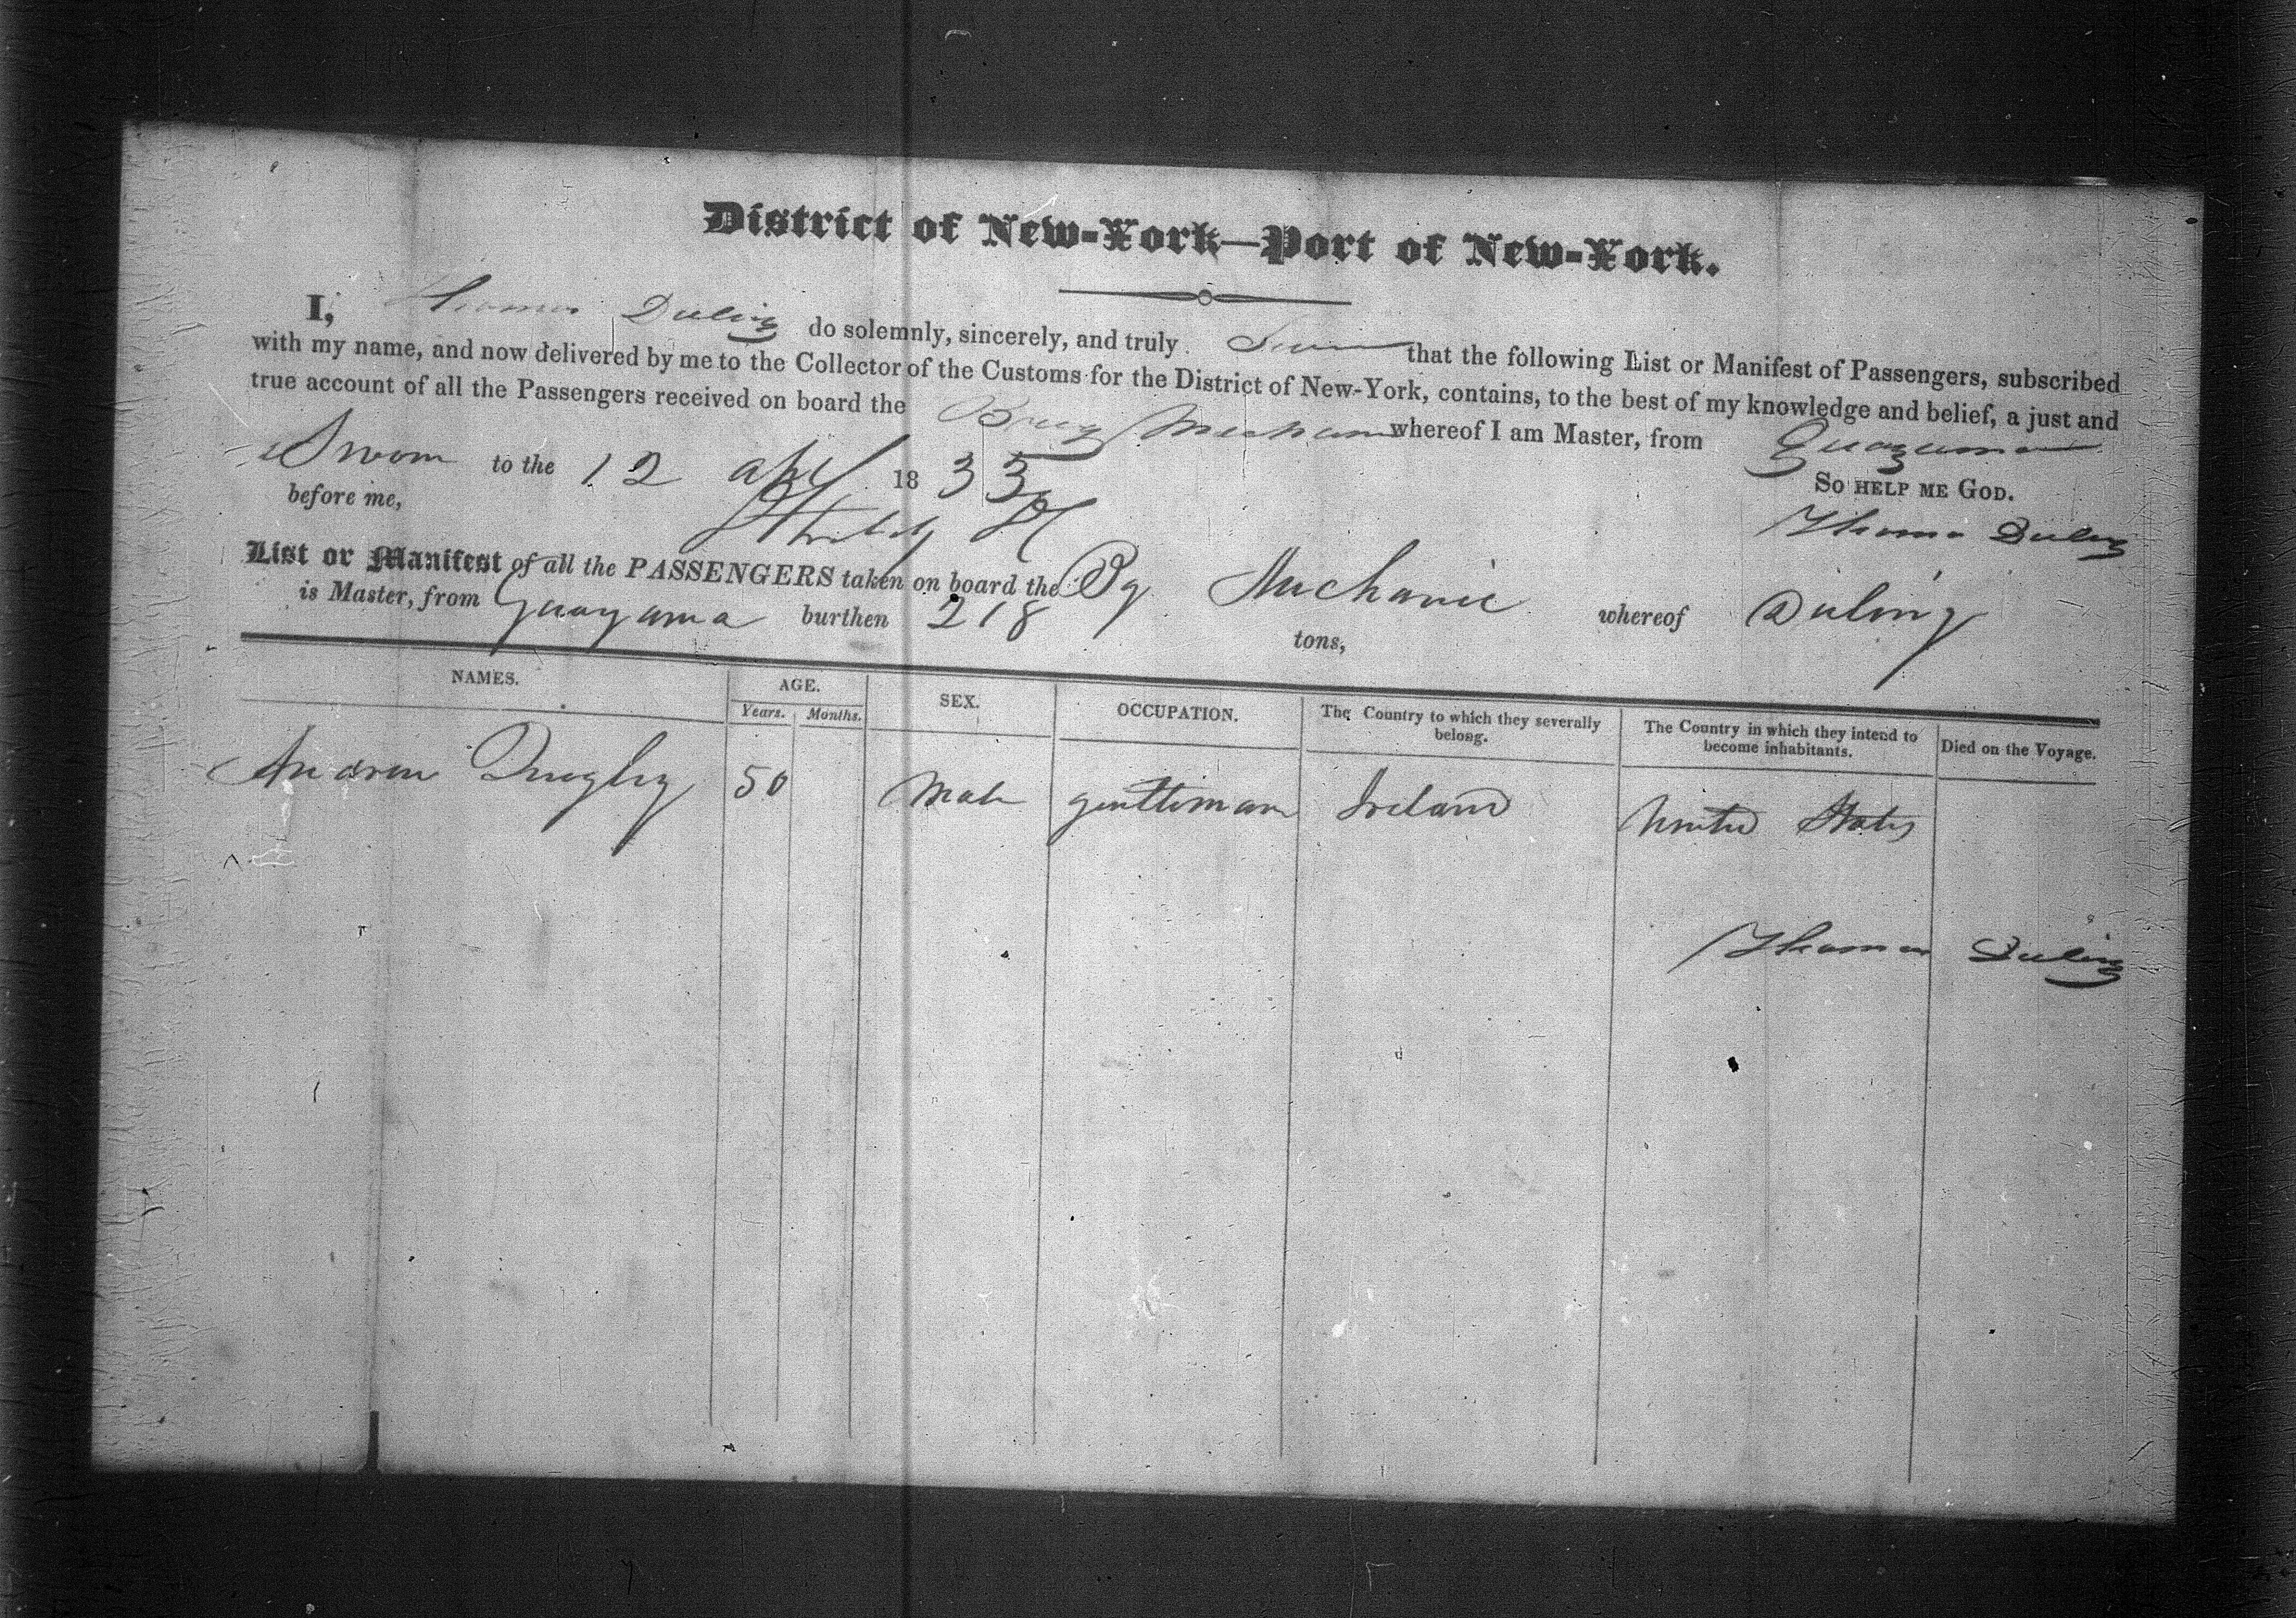 District of New-York—Port of New-York.
I, Thomas Duling do solemnly, sincerely, and truly Swear that the following List or Manifest of Passengers, subscribed
with my name, and now delivered by me to the Collector of the Customs for the District of New-York, contains, to the best of my knowledge and belief, a just and
true account of all the Passengers received on board the Brig Mechanic whereof I am Master, from Guayama
Sworn to the 12 apl 1835 So help me God.
before me, Thomas Duling
List or Manifest of all the PASSENGERS taken on board the Bg Mechanic whereof Duling
is Master, from Guayama burthen 218 tons,
NAMES. AGE. SEX. OCCUPATION. The Country to which they severally belong. The Country in which they intend to become inhabitants. Died on the Voyage.
Years. Months.
Andrew Quigley 50 Male gentleman Ireland United States
Thomas Duling